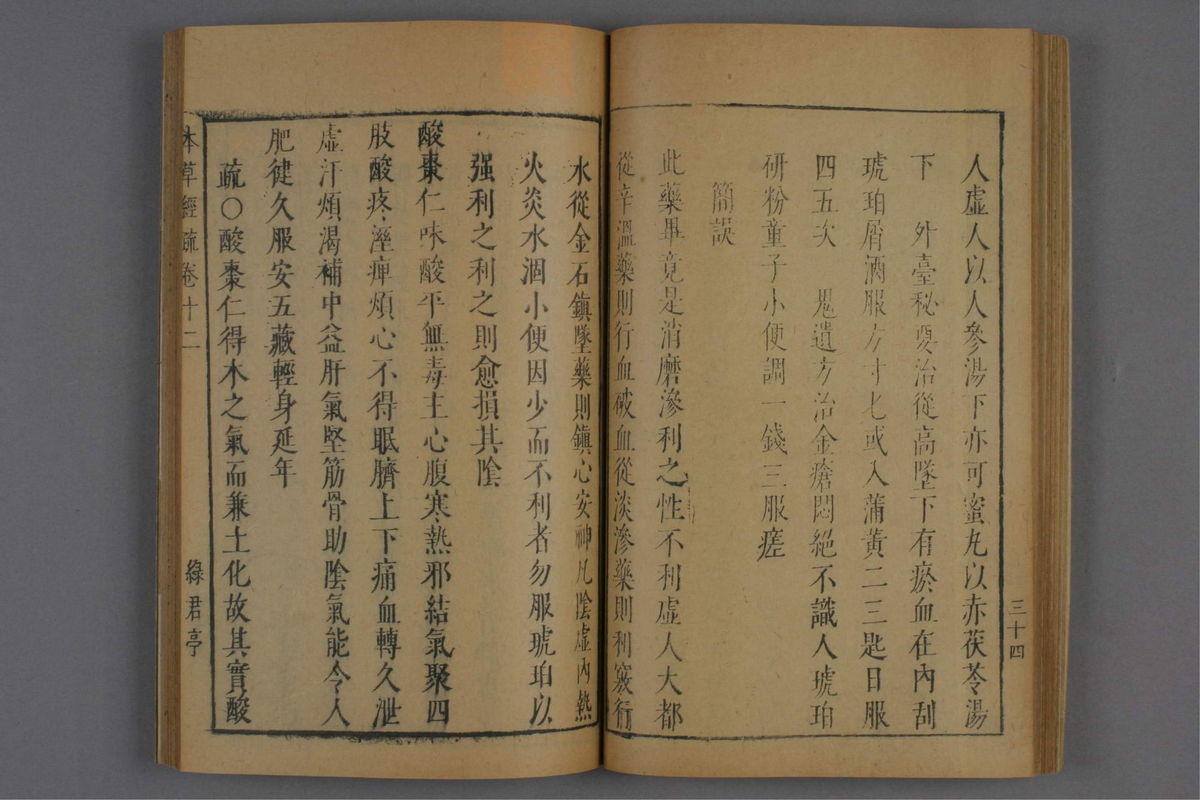 人虛人以人參湯下亦可蜜丸以赤茯苓湯
下　外臺秘要治從高墜下有瘀血在內刮
琥珀屑酒服方寸匕或入蒲黃二三匙日服
四五次　鬼遺方治金瘡悶絕不識人琥珀
研粉童子小便調一錢三服瘥
簡誤
此藥畢竟是消磨滲利之性不利虛人大都
從辛溫藥則行血破血從淡滲藥則利竅行
三十四
水從金石鎮墜藥則鎮心安神凡陰虛內熱
火炎水涸小便因少而不利者勿服琥珀以
強利之利之則愈損其陰
酸棗仁味酸平無毒主心腹寒熱邪結氣聚四
肢酸疼溼痺煩心不得眠臍上下痛血轉久泄
虛汗煩渴補中益肝氣堅筋骨助陰氣能令人
肥健久服安五藏輕身延年
疏〇酸棗仁得木之氣而兼土化故其實酸
本草經疏卷十二
綠君亭